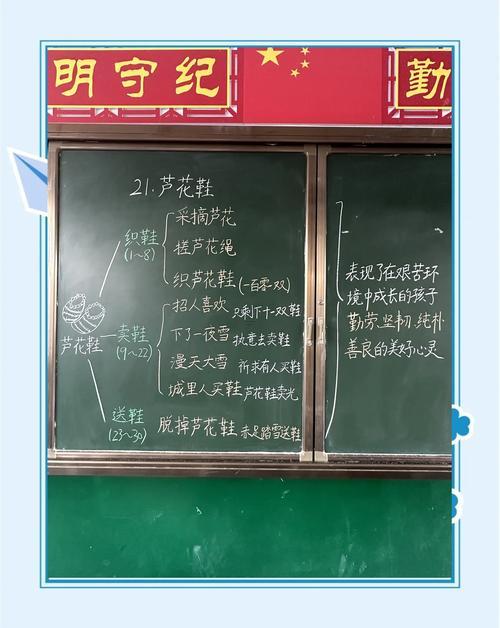 明守纪
勤
21.芦花鞋
芦花鞋
织鞋
(1~8)
采摘芦花
搓芦花绳
织芦花鞋(一百零一双)
卖鞋
(9~22)
招人喜欢 只剩下十一双鞋
下了一夜雪 执意去卖鞋
漫天大雪 祈求有人买鞋
城里人买鞋 芦花鞋卖光
送鞋
(23~39)
脱掉芦花鞋 赤足踏雪送鞋
表现了在艰苦环
境中成长的孩子
勤劳、坚韧、纯朴
善良的美好心灵